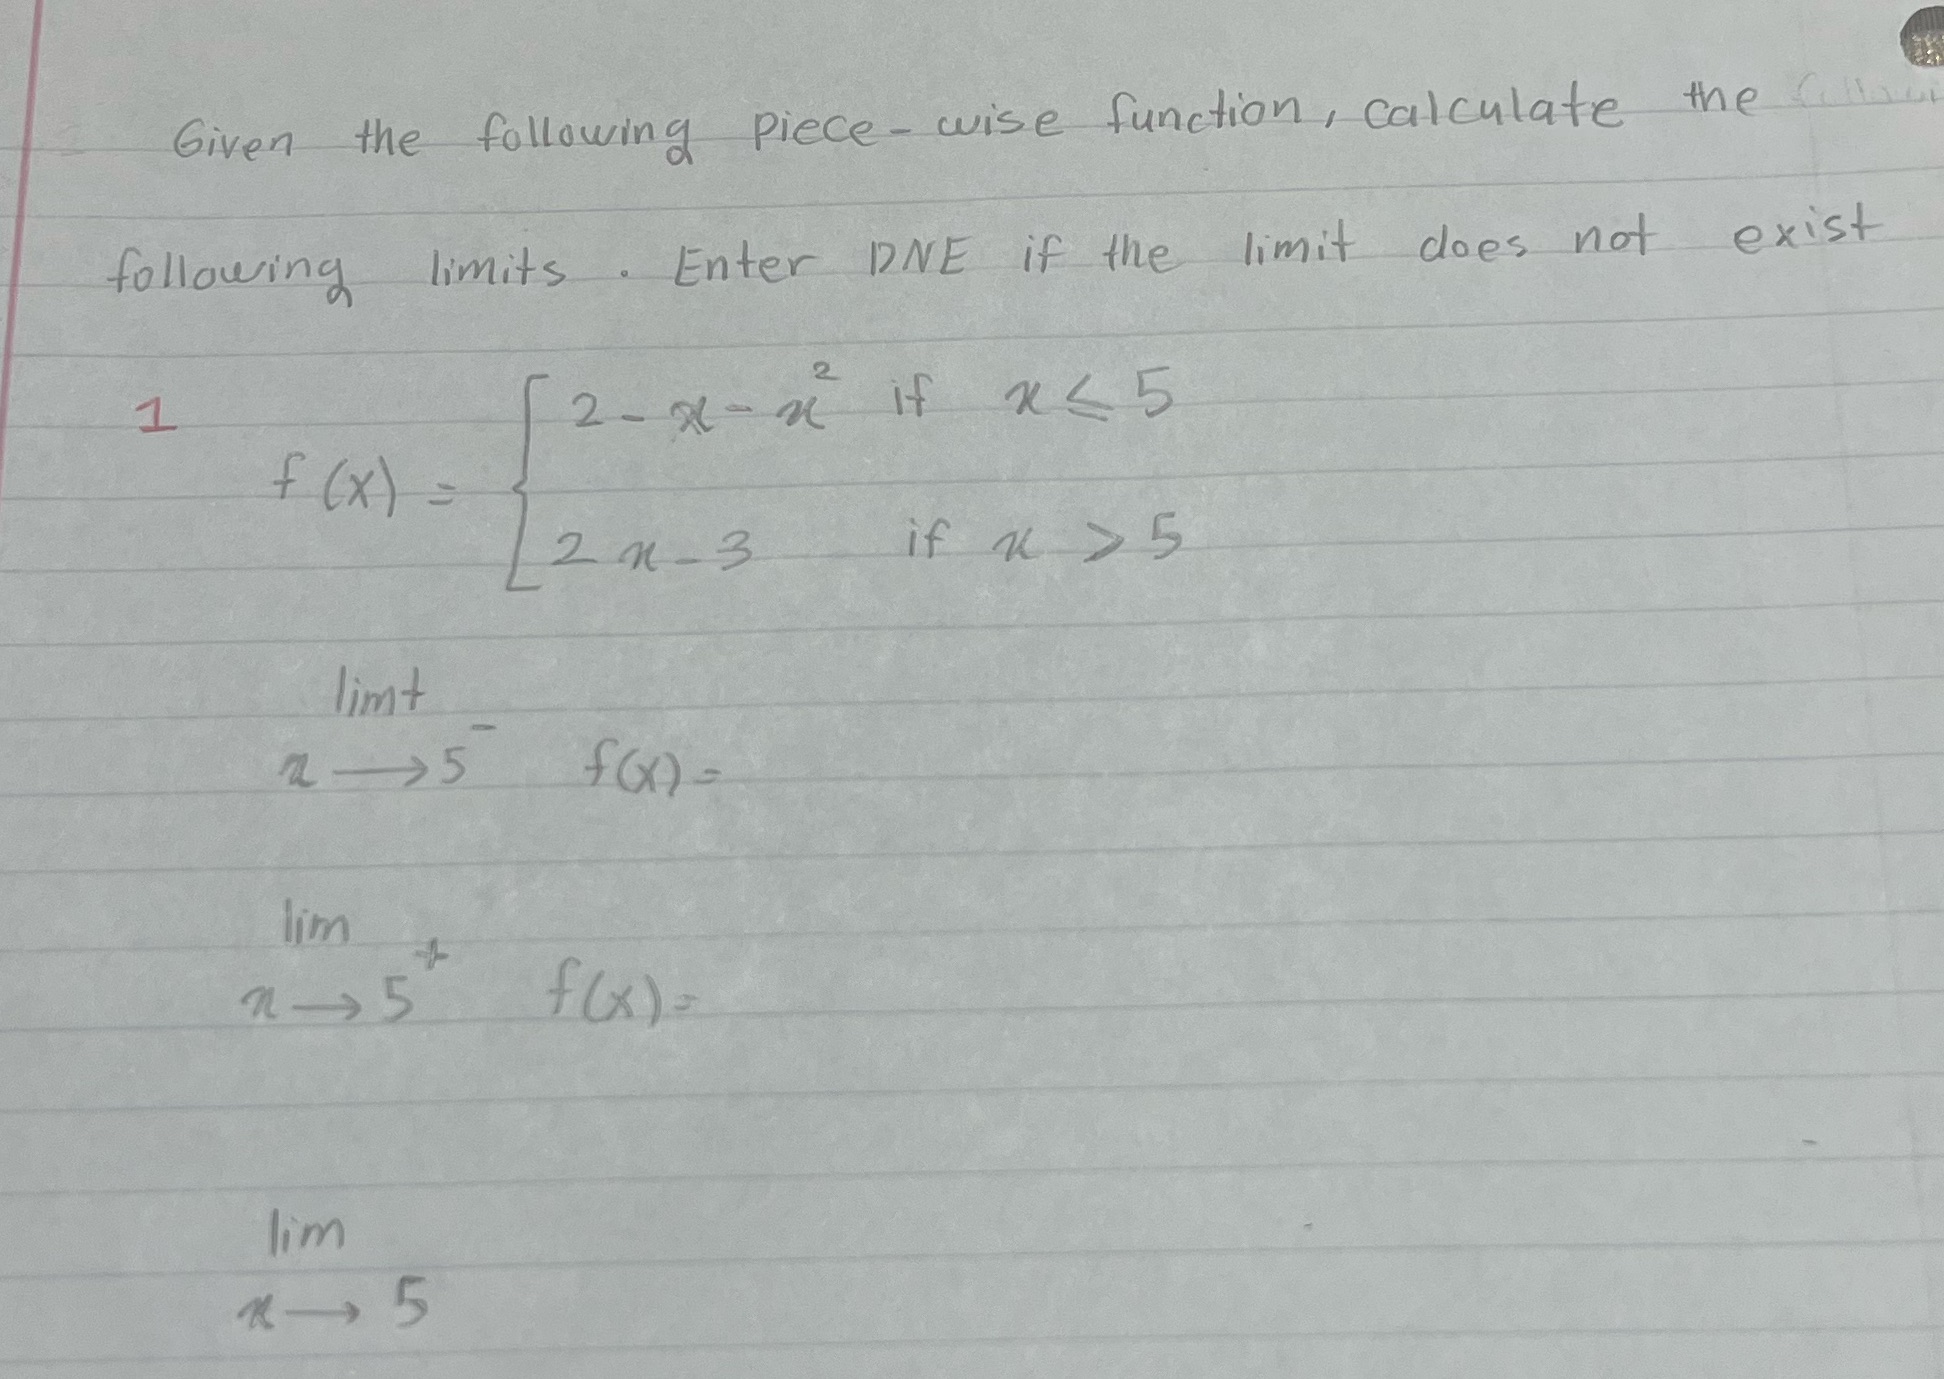 Given the following piece-wise function, calculate the
following limits. Enter DNE if the limit does not exist
1
2 - x - x² if x ≤ 5
f(x) =
2x - 3 if x > 5
limt
x → 5⁻ f(x) =
lim
x → 5⁺ f(x) =
lim
x → 5